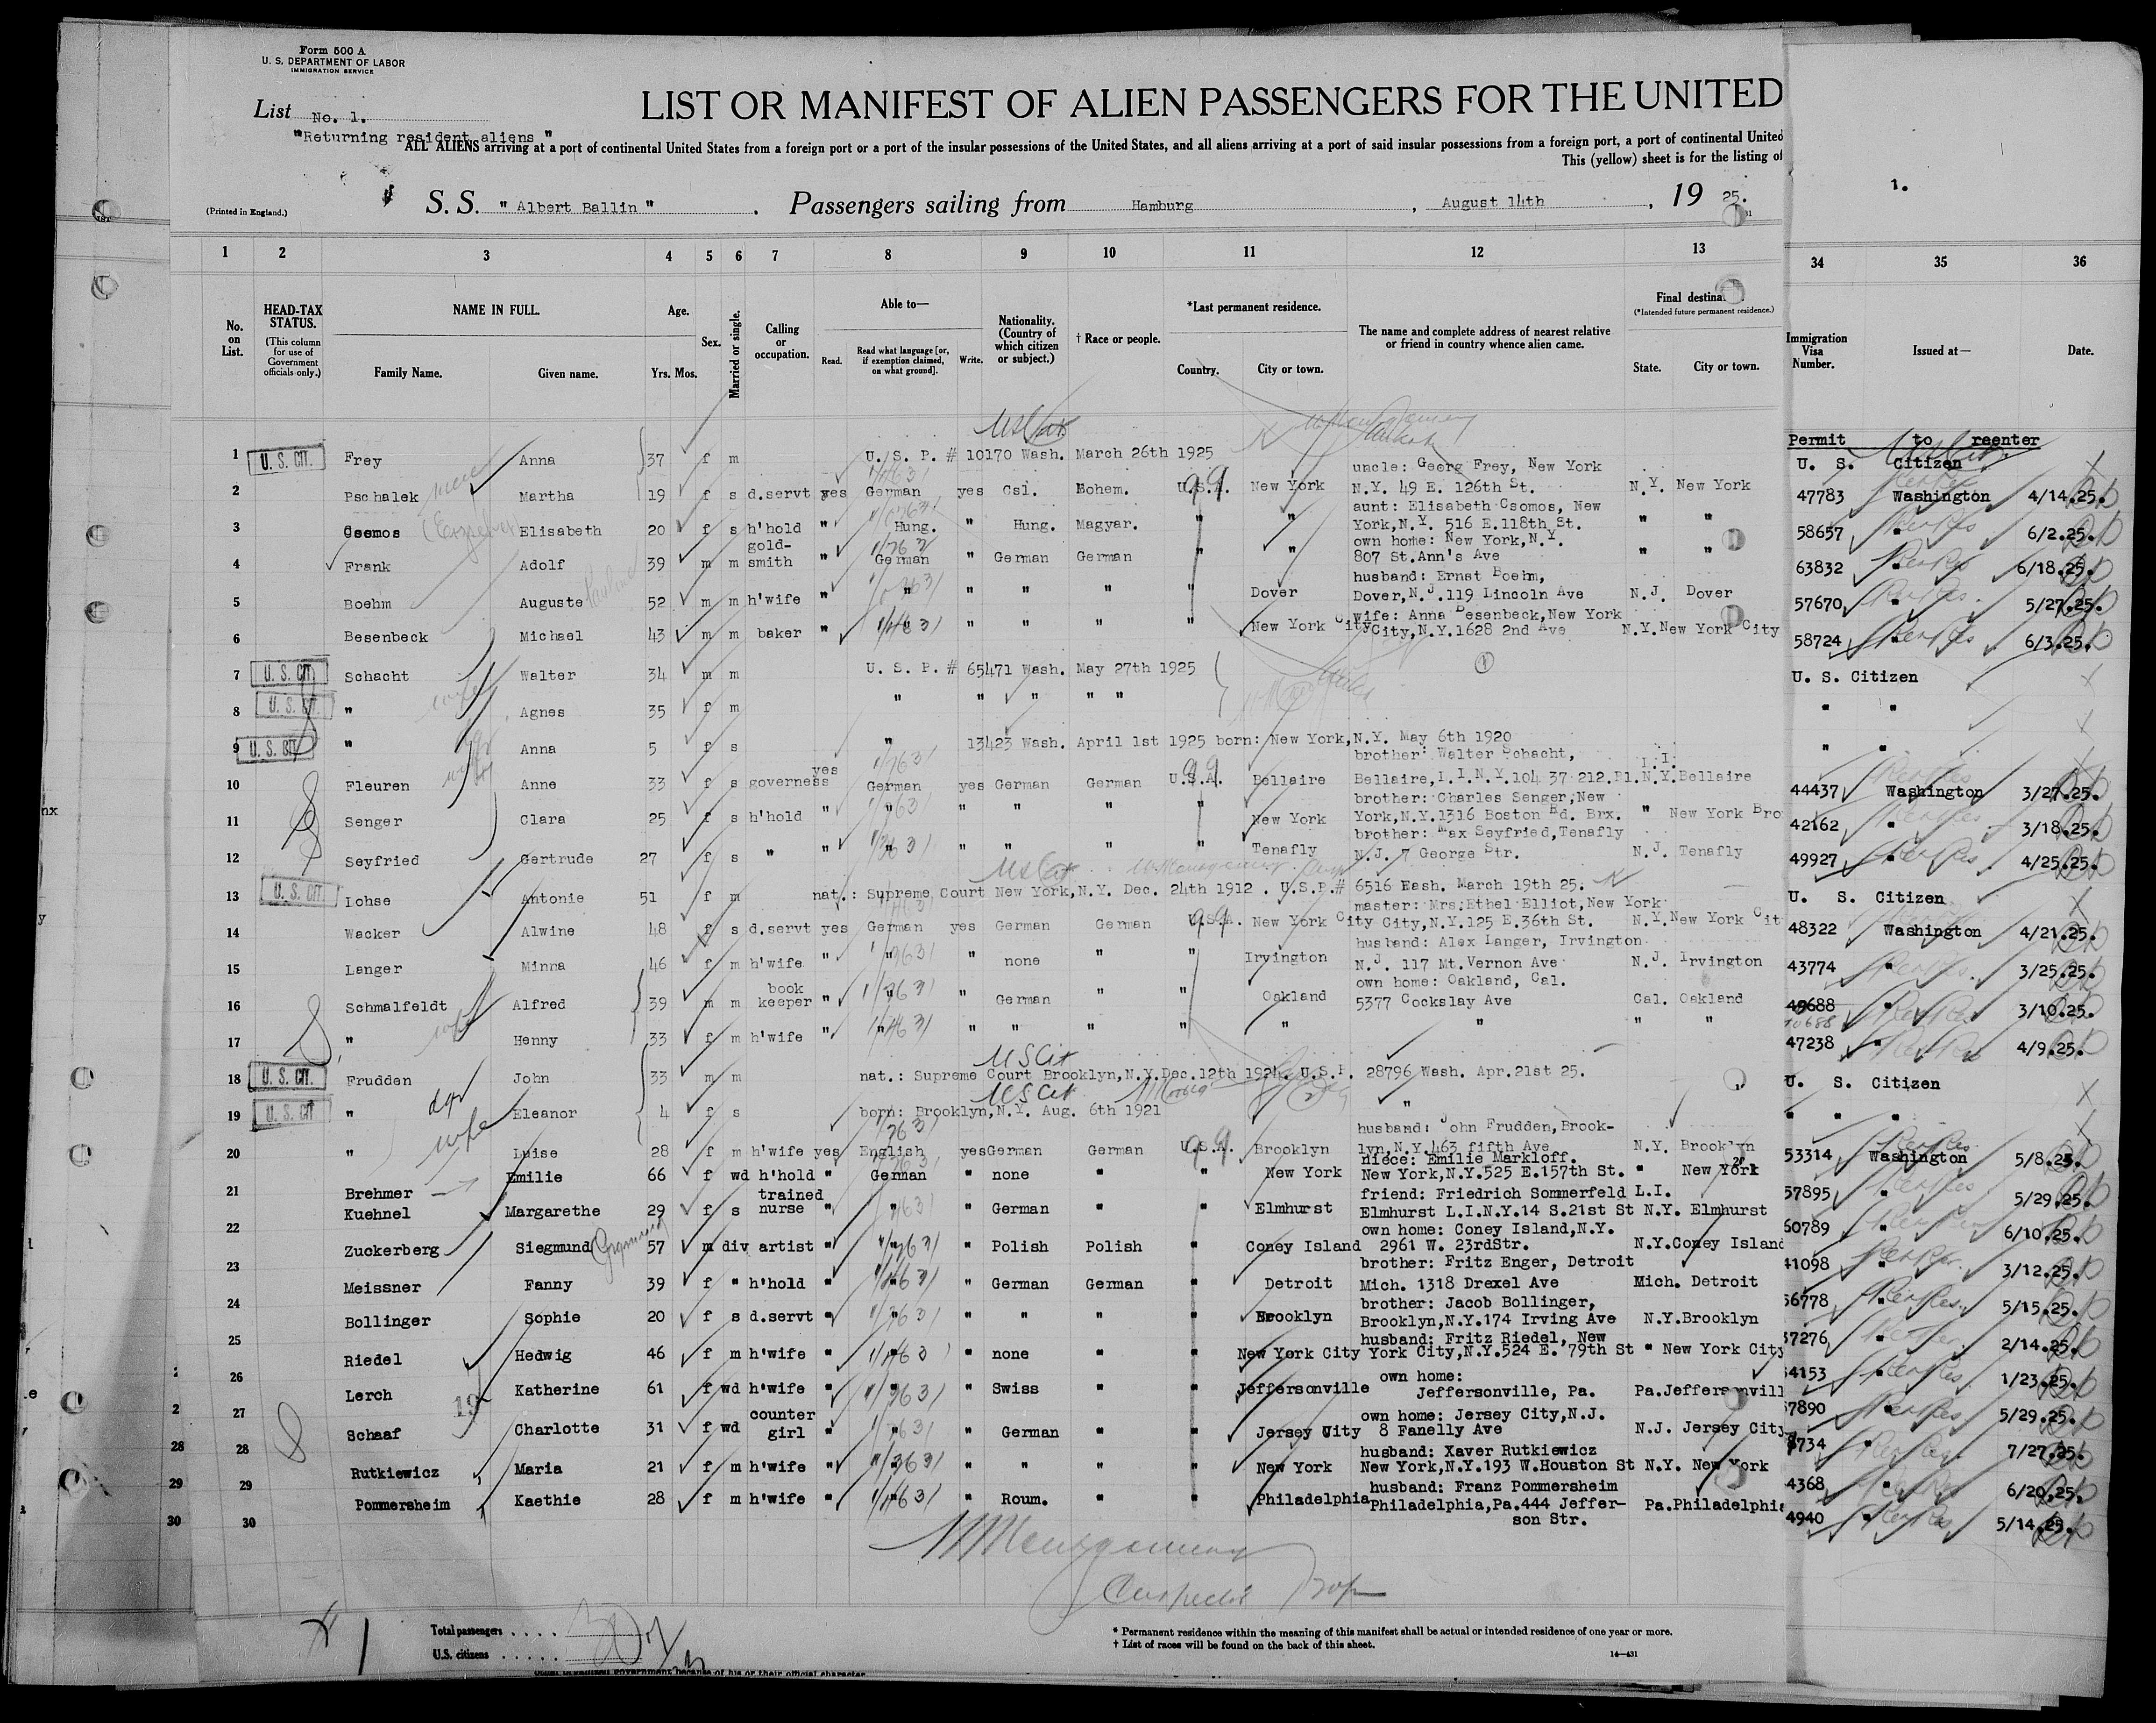 Form 500 A
U. S. DEPARTMENT OF LABOR
IMMIGRATION SERVICE
List No. 1.
"Returning resident aliens "
LIST OR MANIFEST OF ALIEN PASSENGERS FOR THE UNITED
ALL ALIENS arriving at a port of continental United States from a foreign port or a port of the insular possessions of the United States, and all aliens arriving at a port of said insular possessions from a foreign port, a port of continental United
This (yellow) sheet is for the listing of
(Printed in England.)
S. S. " Albert Ballin " . Passengers sailing from Hamburg , August 14th , 19 25.
1.
1 2 3 4 5 6 7 8 9 10 11 12 13 34 35 36
No. on List.
HEAD-TAX STATUS.
(This column for use of Government officials only.)
NAME IN FULL.
Family Name. Given name.
Age.
Yrs. Mos.
Sex.
Married or single.
Calling or occupation.
Able to—
Read. Read what language [or, if exemption claimed, on what ground]. Write.
Nationality. (Country of which citizen or subject.)
† Race or people.
*Last permanent residence.
Country. City or town.
The name and complete address of nearest relative or friend in country whence alien came.
Final destina
(*Intended future permanent residence.)
State. City or town.
Immigration Visa Number.
Issued at—
Date.
US Cit
Permit to reenter
1 U. S. CIT. Frey Anna 37 f m U. S. P. # 10170 Wash. March 26th 1925 U. S. Citizen
uncle: Georg Frey, New York
2 Pschalek Martha 19 f s d.servt yes German yes Csl. Bohem. U.S.A. New York N.Y. 49 E. 126th St. N.Y. New York 47783 Washington 4/14.25.
aunt: Elisabeth Csomos, New
3 Csomos Elisabeth 20 f s h'hold " Hung. " Hung. Magyar. " " York,N.Y. 516 E.118th St. " " 58657 " 6/2.25.
gold- own home: New York,N.Y.
4 Frank Adolf 39 m m smith " German " German German " " 807 St.Ann's Ave " " 63832 " 6/18.25.
husband: Ernst Boehm,
5 Boehm Auguste 52 m m h'wife " " " " " " Dover Dover,N.J.119 Lincoln Ave N.J. Dover 57670 " 5/27.25.
wife: Anna Besenbeck,New York
6 Besenbeck Michael 43 m m baker " " " " " " New York City City,N.Y.1628 2nd Ave N.Y.New York City 58724 " 6/3.25.
7 U. S. CIT. Schacht Walter 34 m m U. S. P. # 65471 Wash. May 27th 1925 U. S. Citizen
8 U. S. CIT. " wife Agnes 35 f m " " " " " " "
9 U. S. CIT. " Anna 5 f s " 13423 Wash. April 1st 1925 born: New York,N.Y. May 6th 1920 " "
brother: Walter Schacht,
yes L.I.
10 Fleuren Anne 33 f s governess German yes German German U.S.A. Bellaire Bellaire,L.I.N.Y.104 37 212.Pl.N.Y.Bellaire 44437 Washington 3/27.25.
brother: Charles Senger,New
11 Senger Clara 25 f s h'hold " " " " " " New York York,N.Y.1316 Boston Rd. Brx. " New York Bro 42162 " 3/18.25.
brother: Max Seyfried,Tenafly
12 Seyfried Gertrude 27 f s " " " " " " " Tenafly N.J. 7 George Str. N.J. Tenafly 49927 " 4/25.25.
US Cit
13 U. S. CIT. Lohse Antonie 51 f m nat.: Supreme Court New York,N.Y. Dec. 24th 1912 . U.S.P.# 6516 Eash. March 19th 25. U. S. Citizen
master: Mrs.Ethel Elliot,New York
14 Wacker Alwine 48 f s d.servt yes German yes German German U.S.A. New York City City,N.Y.125 E.36th St. N.Y.New York Cit 48322 Washington 4/21.25.
husband: Alex Langer, Irvington
15 Langer Minna 46 f m h'wife " " " none " " Irvington N.J. 117 Mt.Vernon Ave N.J. Irvington 43774 " 3/25.25.
book own home: Oakland, Cal.
16 Schmalfeldt Alfred 39 m m keeper " " " German " " Oakland 5377 Cockslay Ave Cal. Oakland 49688 " 3/10.25.
17 " wife Henny 33 f m h'wife " " " " " " " " " " 47238 " 4/9.25.
US Cit
18 U. S. CIT. Frudden John 33 m m nat.: Supreme Court Brooklyn,N.Y.Dec.12th 1924. U.S.P. 28796 Wash. Apr.21st 25. U. S. Citizen
US Cit
19 U. S. CIT " dgr Eleanor 4 f s born: Brooklyn,N.Y. Aug. 6th 1921 " " " "
husband: John Frudden,Brook-
20 " wife Luise 28 f m h'wife yes English yesGerman German U.S.A. Brooklyn lyn,N.Y.463 fifth Ave N.Y. Brooklyn 53314 Washington 5/8.25.
niece: Emilie Markloff.
21 Brehmer Emilie 66 f wd h'hold " German " none " " New York New York,N.Y.525 E.157th St. " New York 57895 " 5/29.25.
trained friend: Friedrich Sommerfeld L.I.
22 Kuehnel Margarethe 29 f s nurse " " " German " " Elmhurst Elmhurst L.I.N.Y.14 S.21st St N.Y. Elmhurst 60789 " 6/10.25.
own home: Coney Island,N.Y.
23 Zuckerberg Siegmund 57 m div artist " " " Polish Polish " Coney Island 2961 W. 23rdStr. N.Y.Coney Island 41098 " 3/12.25.
brother: Fritz Enger, Detroit
24 Meissner Fanny 39 f " h'hold " " " German German " Detroit Mich. 1318 Drexel Ave Mich. Detroit 56778 " 5/15.25.
brother: Jacob Bollinger,
25 Bollinger Sophie 20 f s d.servt " " " " " " Brooklyn Brooklyn,N.Y.174 Irving Ave N.Y.Brooklyn 37276 " 2/14.25.
husband: Fritz Riedel, New
26 Riedel Hedwig 46 f m h'wife " " " none " " New York City York City,N.Y.524 E.79th St " New York City 4153 " 1/23.25.
own home:
27 Lerch Katherine 61 f wd h'wife " " " Swiss " " Jeffersonville Jeffersonville, Pa. Pa.Jeffersonvill 7890 " 5/29.25.
counter own home: Jersey City,N.J.
28 28 Schaaf Charlotte 31 f wd girl " " " German " " Jersey City 8 Fanelly Ave N.J. Jersey City 734 " 7/27.25.
husband: Xaver Rutkiewicz
29 29 Rutkiewicz Maria 21 f m h'wife " " " " " " New York New York,N.Y.193 W.Houston St N.Y. New York 4368 " 6/20,25,
husband: Franz Pommersheim
30 30 Pommersheim Kaethie 28 f m h'wife " " " Roum. " " Philadelphia Philadelphia,Pa.444 Jeffer- Pa.Philadelphia 4940 " 5/14.25.
son Str.
Total passengers . . . .
U.S. citizens . . . . .
* Permanent residence within the meaning of this manifest shall be actual or intended residence of one year or more.
† List of races will be found on the back of this sheet.
14—431